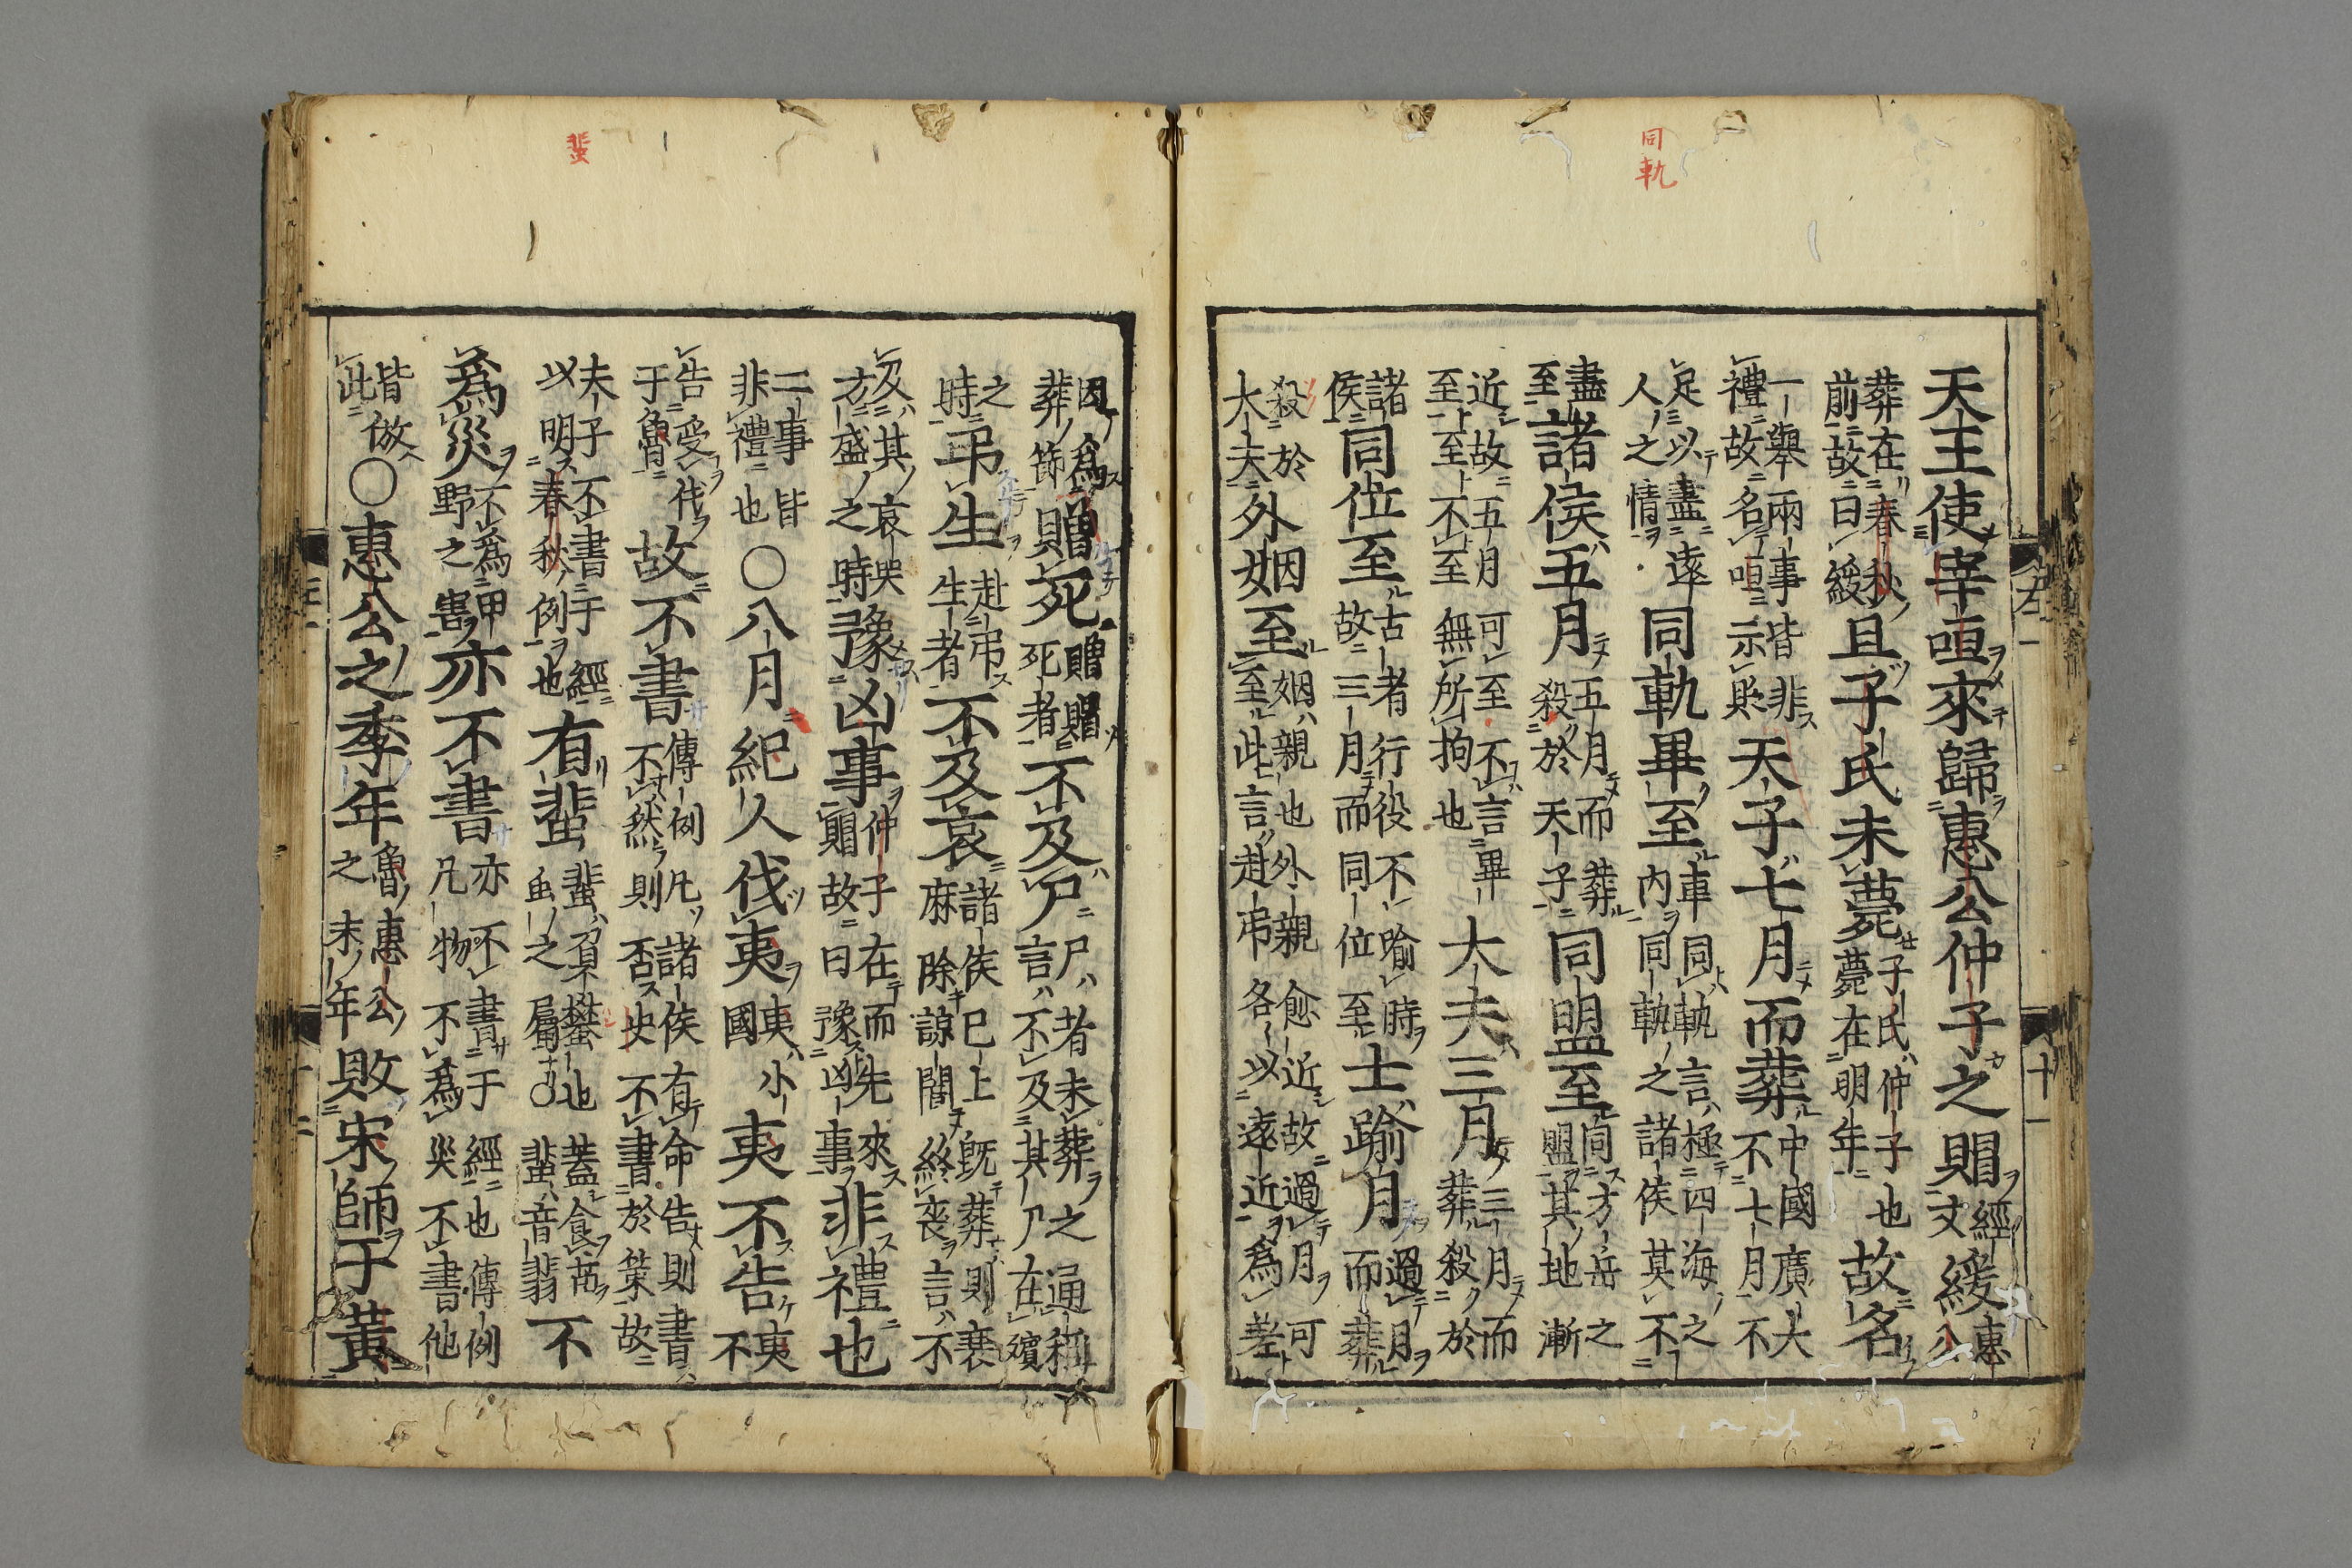 同軌
天王使宰咺來歸惠公仲子之賵經文緩惠公
葬在春秋前故曰緩且子氏未薨子氏仲子也薨在明年故名
一舉兩事皆非禮故名咺示貶天子七月而葬中國廣大不七月不
足以盡遠人之情同軌畢至車同軌言極四海之內同軌之諸侯莫不
盡至諸侯五月五月而葬殺於天子同盟至同方岳之盟其地漸
近故五月可至不言畢至至不至無所拘也大夫三月三月而葬殺於
諸侯同位至古者行役不踰時故三月而同位至士踰月過月而葬
殺於大夫外姻至姻親也外親愈近故過月可至此言赴弔各以遠近爲差
十一
蜚
因爲葬節贈死贈賵死者不及尸尸者未葬之通稱言不及其尸在殯
之時弔生赴弔生者不及哀諸侯已上既葬則衰麻除諒闇終喪言不
及其哀哭方盛之時豫凶事仲子在而先來賵故曰豫凶事非禮也
二事皆非禮也○八月紀人伐夷夷小國夷不告夷不
告受伐于魯故不書傳例凡諸侯有命告則書不然則否史不書於策故
夫子不書于經以明春秋例也有蜚蜚負蠜也蓋食苗虫之屬○蜚音翡不
爲災不爲甲野之害亦不書亦不書于經也傳例凡物不爲災不書他
皆倣此○惠公之季年魯惠公之末年敗宋師于黃